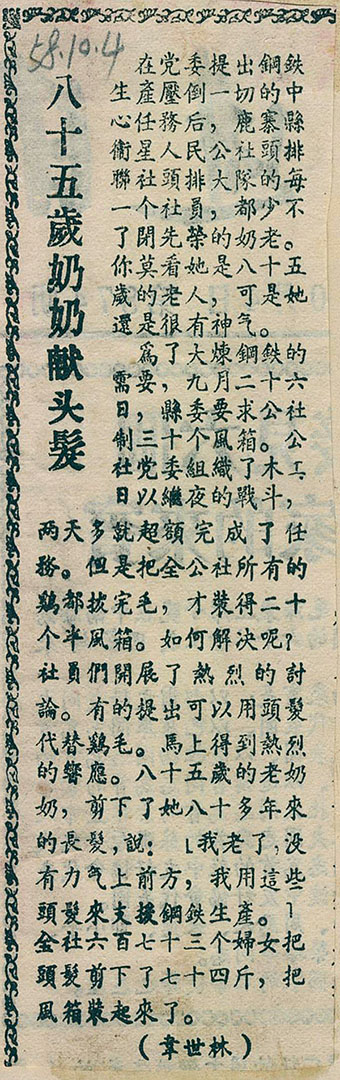 58.10.4
八十五歲奶奶献头髮
在党委提出鋼鐵
生產壓倒一切的中
心任務后，鹿寨縣
衞星人民公社頭排
聯社頭排大隊的每
一个社員，都少不
了閉先榮的奶老。
你莫看她是八十五
歲的老人，可是她
還是很有神气。
爲了大煉鋼鐵的
需要，九月二十六
日，縣委要求公社
制三十个風箱。公
社党委組織了木工，
日以繼夜的戰斗，
两天多就起額完成了任
務。但是把全公社所有的
鷄都拔完毛，才裝得二十
个半風箱。如何解决呢？
社員們開展了熱烈的討
論。有的提出可以用頭髮
代替鷄毛。馬上得到熱烈
的響應。八十五歲的老奶
奶，剪下了她八十多年來
的長髮，說：「我老了，没
有力气上前方，我用這些
頭髮來支援鋼鐵生產。」
全社六百七十三个婦女，把
頭髮剪下了七十四斤，把
風箱裝起來了。
（韋世林）